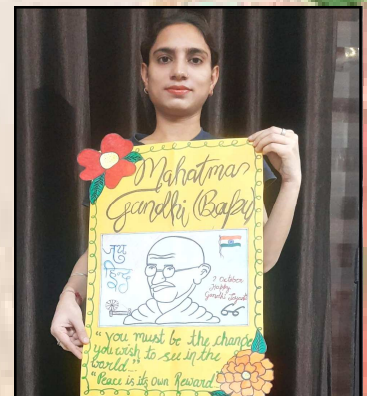 Mahatma
Gandhi (Bapu)
जय
हिन्द
2 October
Happy
Gandhi Jayanti
"you must be the change
you wish to see in the
world..."
"Peace is its own Reward.